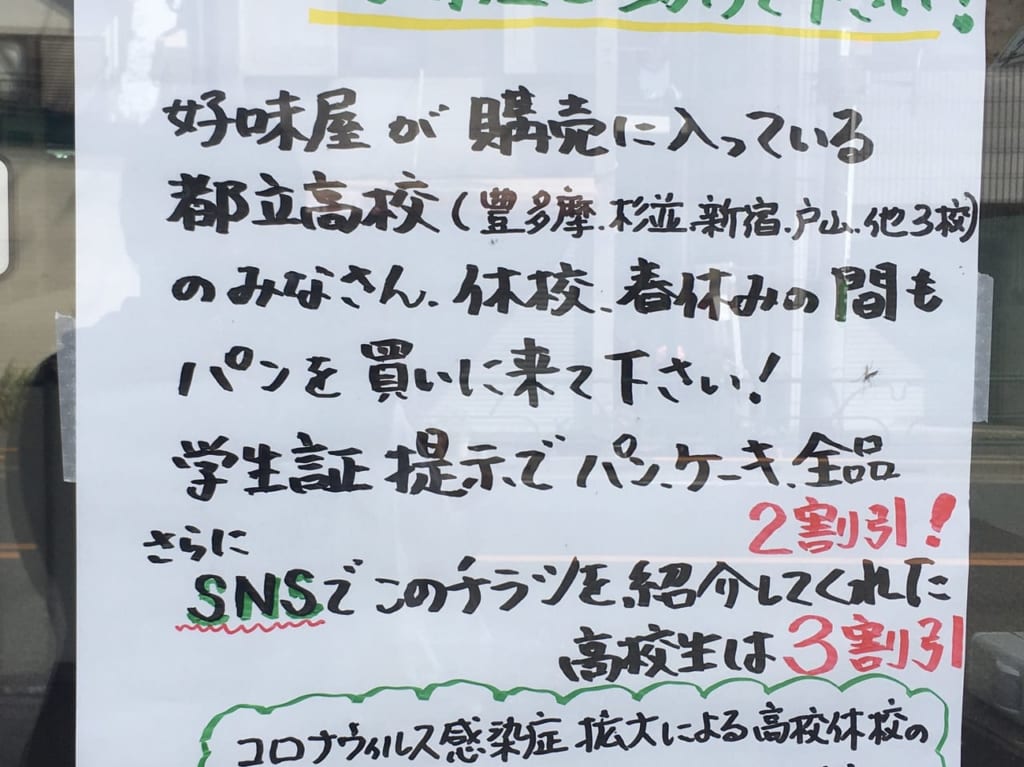 助けて下さい!
好味屋が購売に入っている
都立高校(豊多摩、杉並、新宿、戸山、他3校)
のみなさん、休校、春休みの間も
パンを買いに来て下さい!
学生証提示でパン、ケーキ、全品
2割引!
さらに
SNSでこのチラシを紹介してくれた
高校生は3割引
コロナウィルス感染症拡大による高校休校の